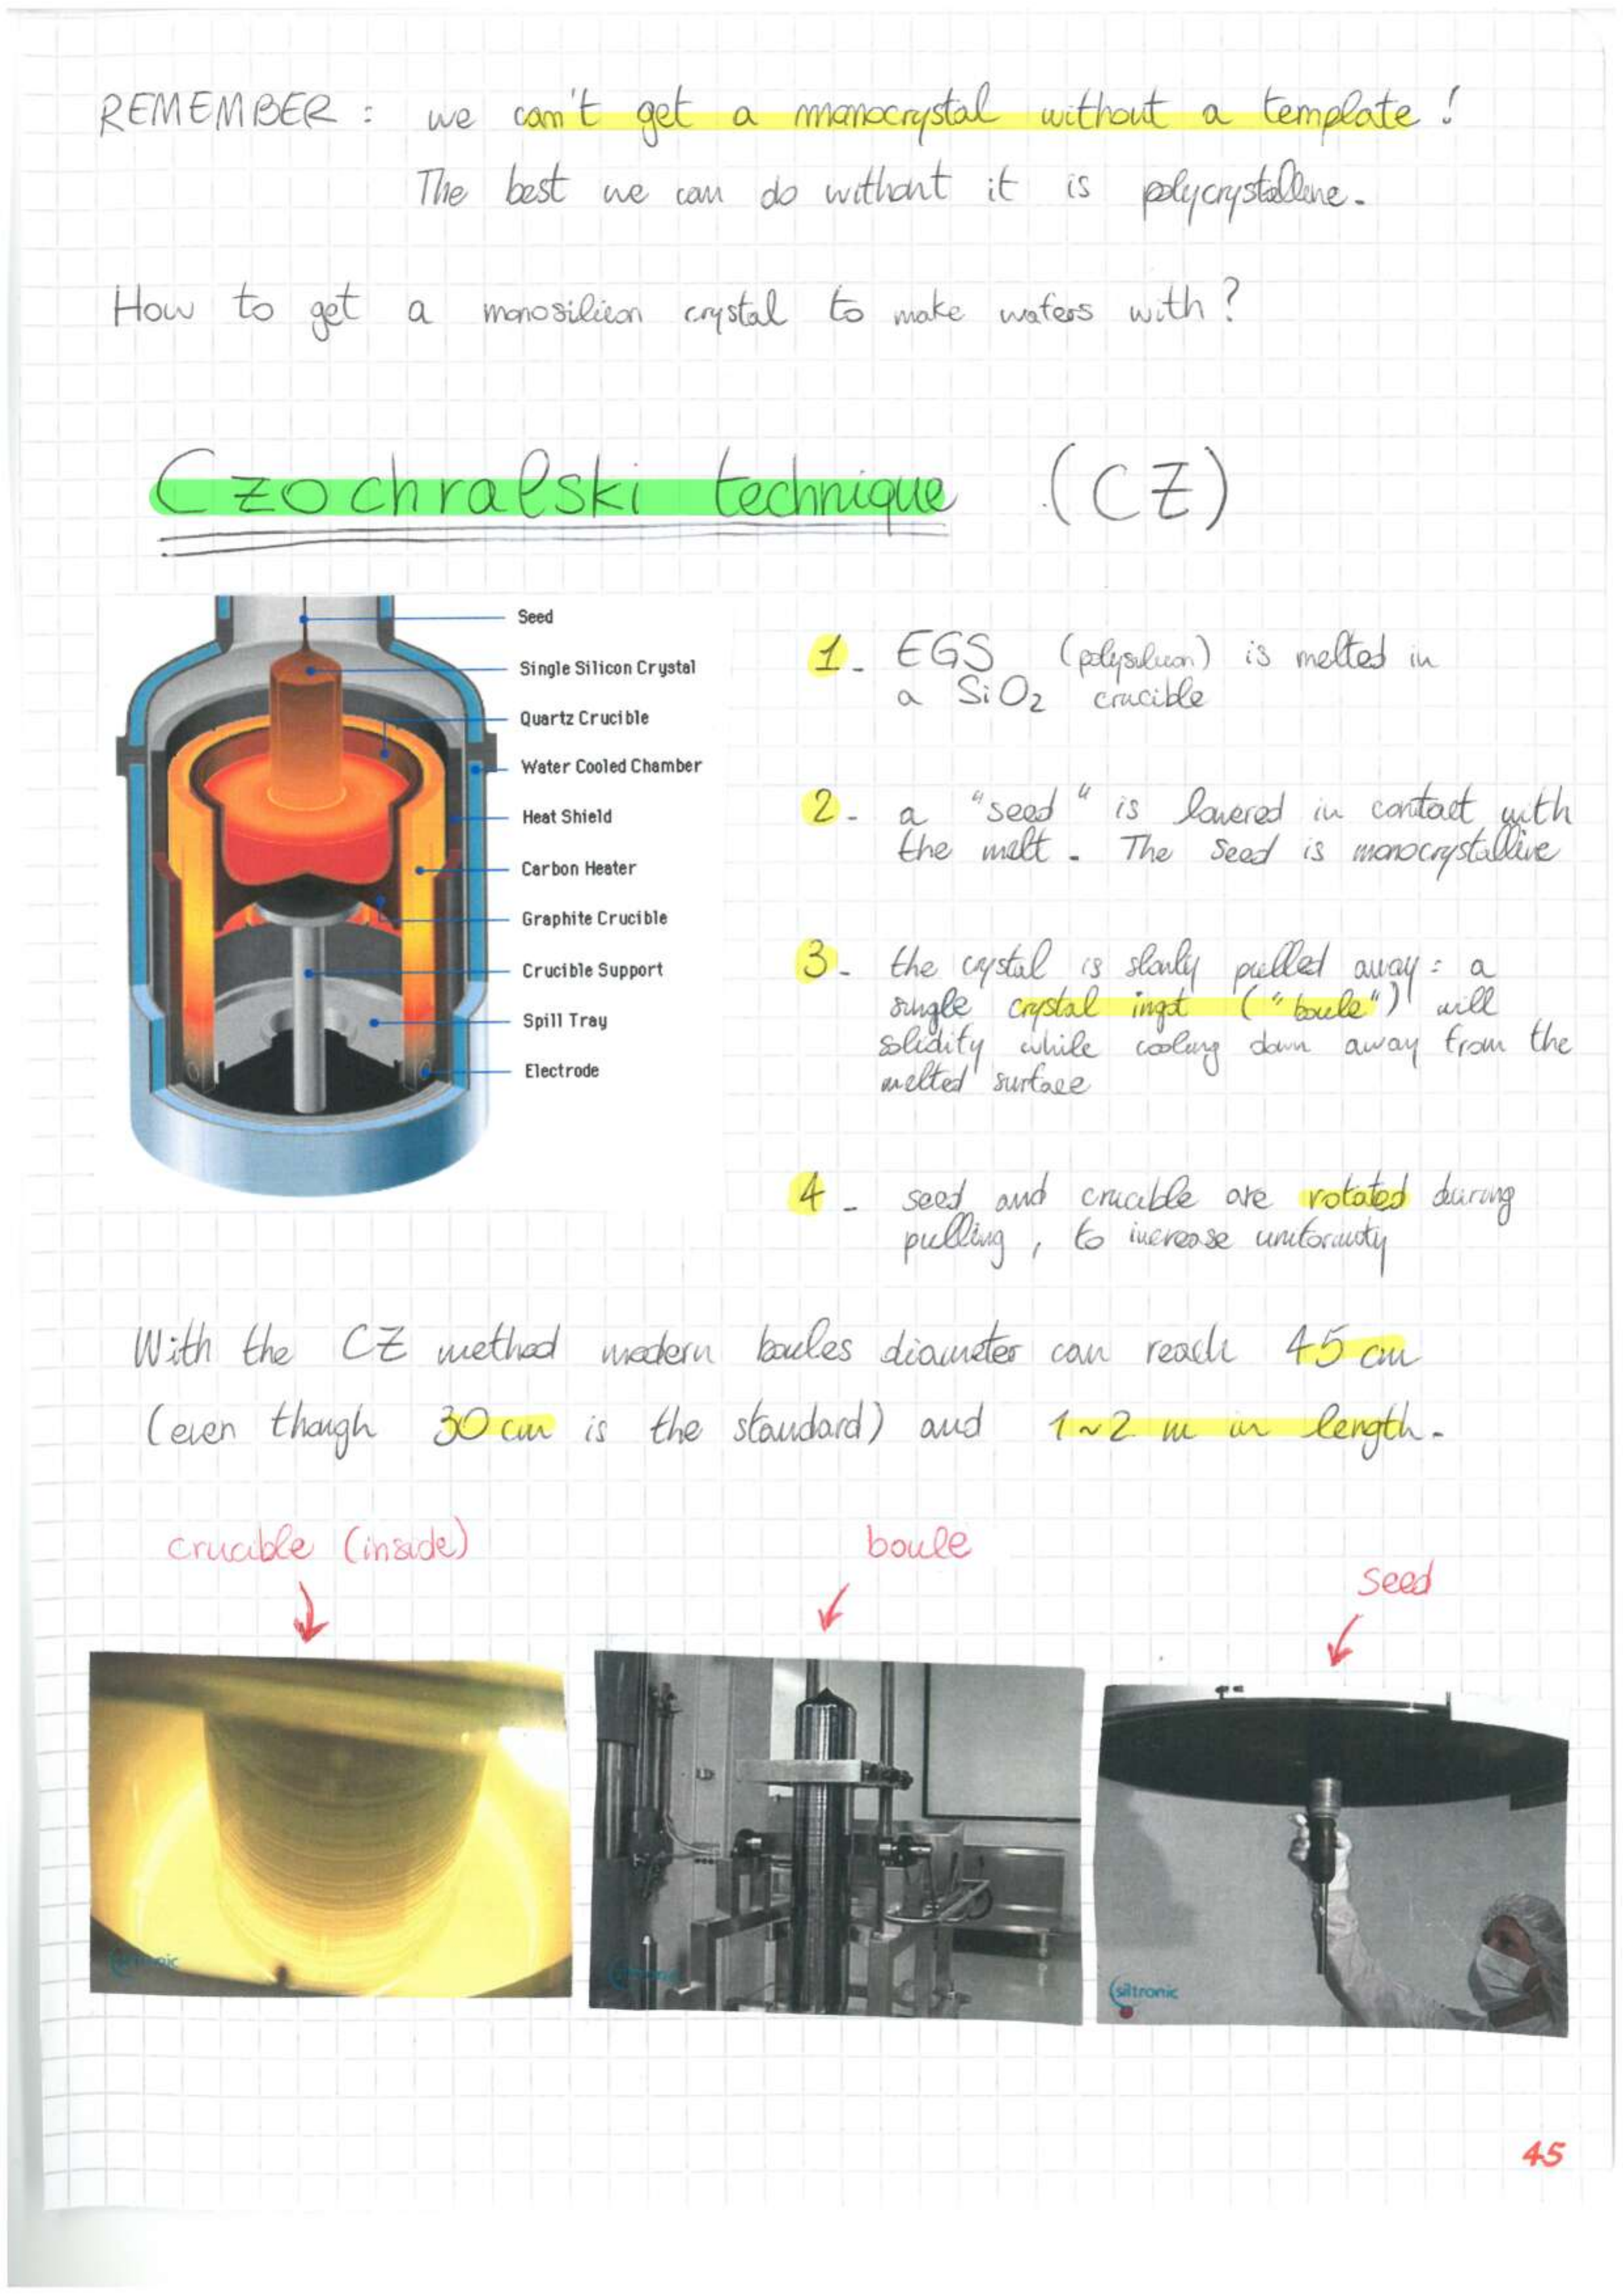 REMEMBER : we can't get a monocrystal without a template !
The best we can do without it is polycrystalline.
How to get a monosilicon crystal to make wafers with ?
Czochralski technique (CZ)
Seed
Single Silicon Crystal
Quartz Crucible
Water Cooled Chamber
Heat Shield
Carbon Heater
Graphite Crucible
Crucible Support
Spill Tray
Electrode
1- EGS (polysilicon) is melted in
a SiO2 crucible
2- a "seed" is lowered in contact with
the melt. The seed is monocrystalline
3- the crystal is slowly pulled away: a
single crystal ingot ("boule") will
solidify while cooling down away from the
melted surface
4- seed and crucible are rotated during
pulling, to increase uniformity
With the CZ method modern boules diameter can reach 45 cm
(even though 30 cm is the standard) and 1~2 m in length.
crucible (inside)
boule
seed
siltronic
siltronic
siltronic
45